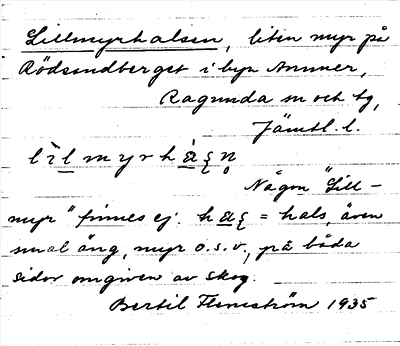 Lillmyrhalsen, liten myr på
Rödsandberget i byn Ammer,
Ragunda sn och tg,
Jämtl. l.
lìlmyrhàʂn̥
Någon "Lill-
myr" finnes ej. haʂ = hals, även
smal äng, myr o.s.v., på båda
sidor omgiven av skog.
Bertil Flemström 1935